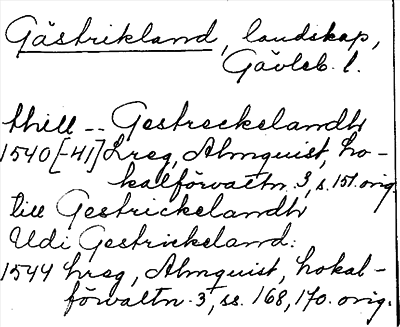 Gästrikland, landskap,
Gävleb. l.
thill -- Gestreckelandh
1540[-41] Lreg, Almquist, Lo-
kalförvaltn. 3, s. 151. orig.
till Gestrickelandh
Udi Gestrickeland:
1544 Lreg, Almquist, Lokal-
förvaltn. 3, ss. 168, 170. orig.